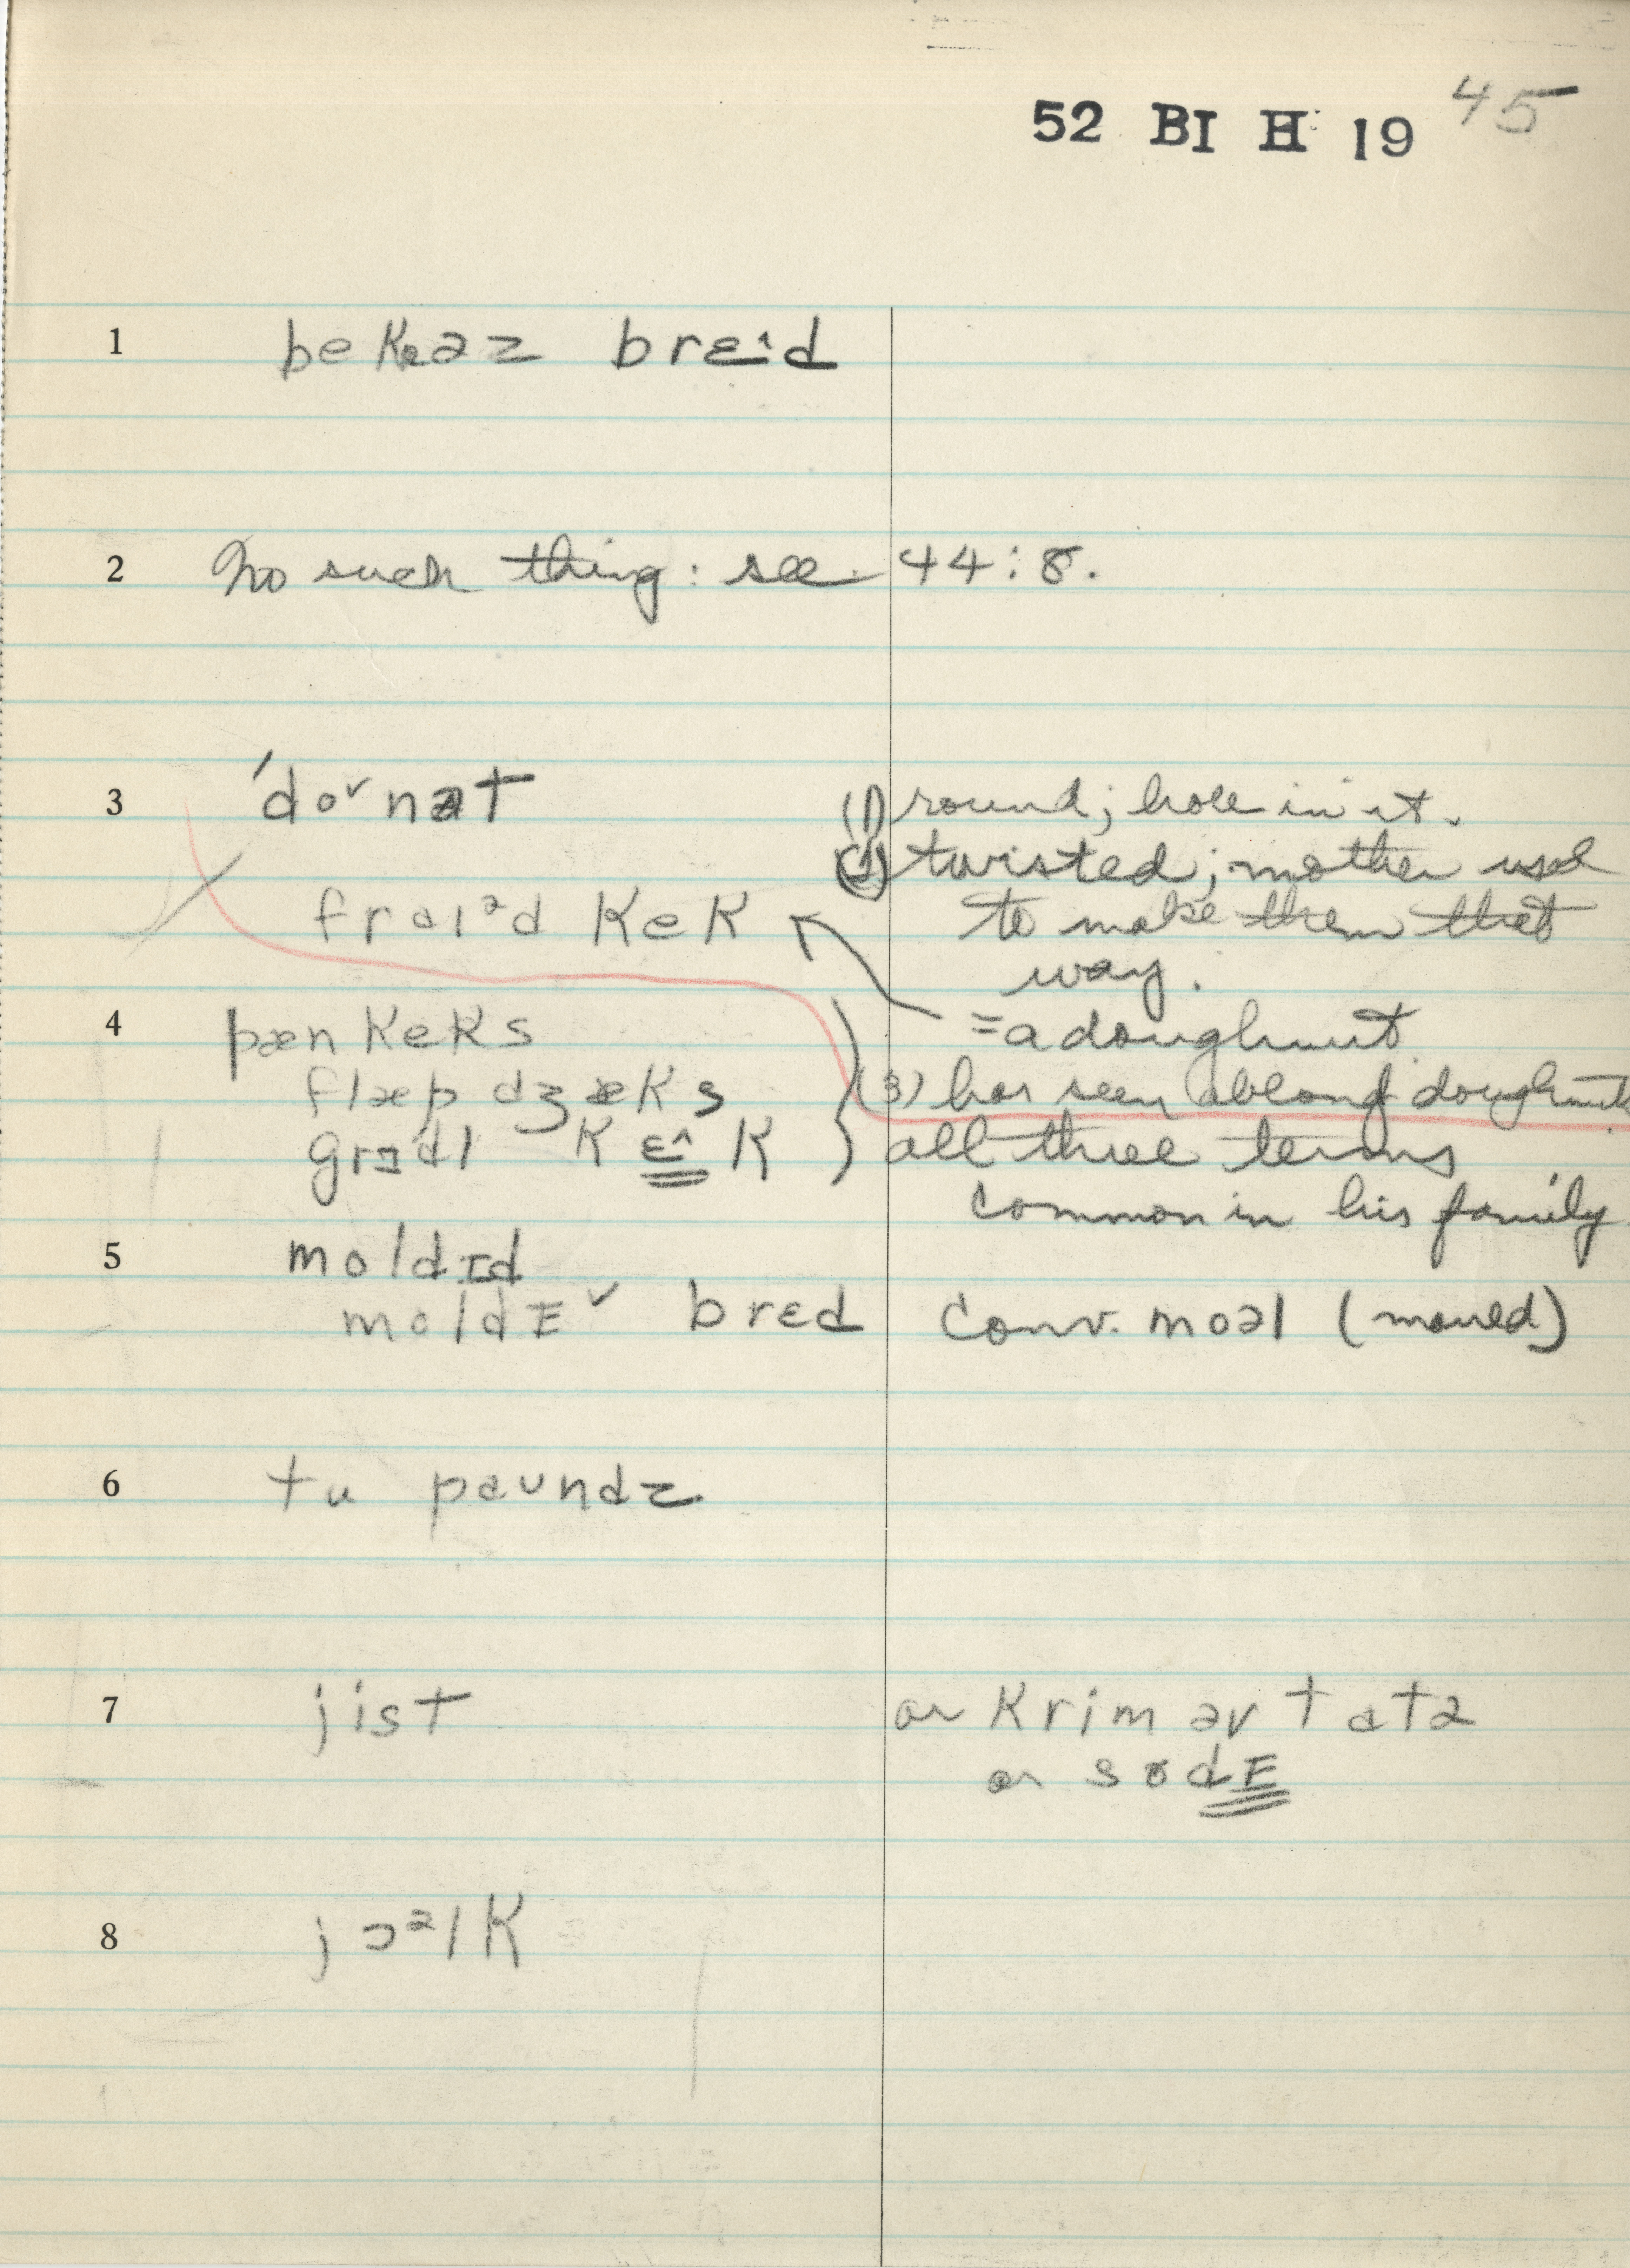 52 BI H 19 45
1 bekəz brɛˑd
2 No such thing: see 44:8.
3 ˈdoˇnət (1) round; hole in it.
(2) twisted; mother used
fraɪᵊd kek to make them that
way.
4 pænkeks =a doughnut.
flæp dʒæks (3) has seen oblong doughnuts
grɪdl kɛ^k all three terms
common in his family
5 moldɪd
moldɪˇ brɛd Conv. moəl (moued)
6 tu paundz
7 jist or krim əv tatə
or sodɪ
8 joᵊlk